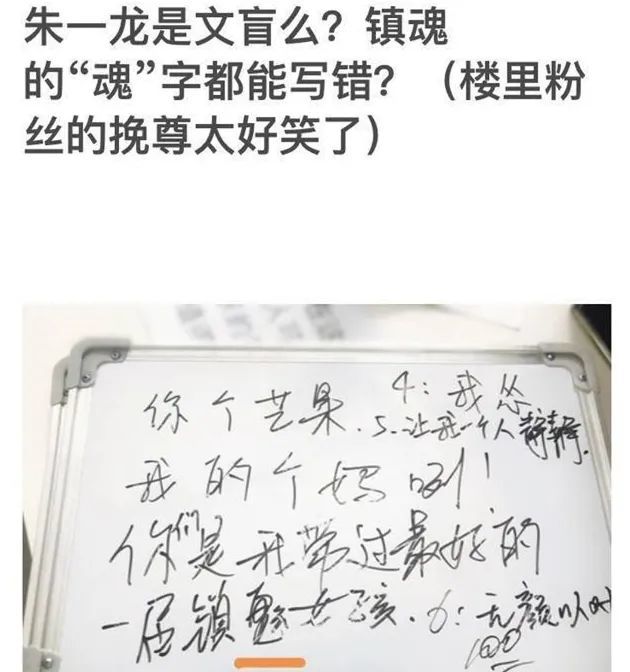 朱一龙是文盲么？镇魂
的“魂”字都能写错？（楼里粉
丝的挽尊太好笑了）
你个芒果. 4：我怂
5. 让我一个人静静.
我的个妈咧！
你们是我带过最好的
一届镇女孩. 6：无颜以对
100